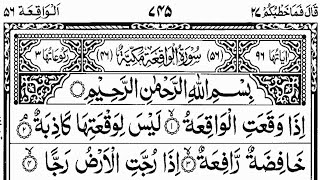 قَالَ فَمَاخَطْبُكُمْ ٢٧ ٧٤٥ اَلْوَاقِعَة ٥٦
اٰيَاتُهَا ٩٦ (٥٦) سُوْرَةُ الْوَاقِعَةِ مَكِّيَّةٌ (٤٦) رُكُوْعَاتُهَا ٣
بِسْمِ اللّٰهِ الرَّحْمٰنِ الرَّحِيْمِ
اِذَا وَقَعَتِ الْوَاقِعَةُ ۝١ لَيْسَ لِوَقْعَتِهَا كَاذِبَةٌ ۝٢
خَافِضَةٌ رَّافِعَةٌ ۝٣ اِذَا رُجَّتِ الْاَرْضُ رَجًّا